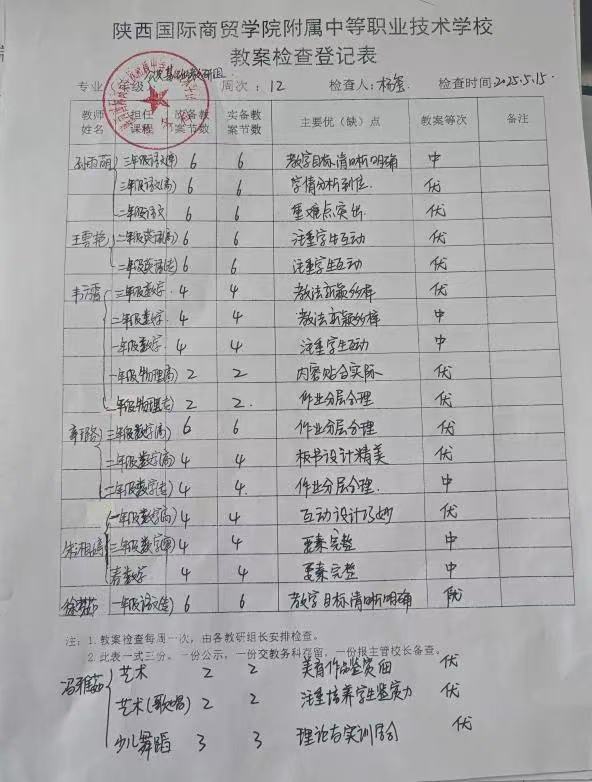 陕西国际商贸学院附属中等职业技术学校
教案检查登记表
专业 级 教研组 周次：12 检查人：杨 检查时间 2025.5.15.
教师姓名 担任课程 应备教案节数 实备教案节数 主要优（缺）点 教案等次 备注
孙雨萌 三年级语文 6 6 教学目标清晰明确 中
三年级语文(高) 6 6 学情分析到位. 优
二年级语文 6 6 重难点突出 优
王雪艳 二年级英语(高) 6 6 注重学生互动 优
二年级英语 6 6 注重学生互动 优
三年级数学. 4 4 教法新颖多样 优
二年级数学. 4 4 教法新颖多样 中
一年级数学. 4 4 注重学生互动 中
一年级物理(高) 2 2 内容贴合实际 优
一年级物理 2 2. 作业分层合理 优
三年级数学(高) 6 6 作业分层合理 优
二年级数学(高) 4 4 板书设计精美 优
二年级数学 4 4. 作业分层合理. 中
一年级数学(高) 4 4 互动设计巧妙 优
三年级数学 4 4 要素完整 中
数学 4 4 要素完整 中
徐 一年级语文 6 6 教学目标清晰明确 优
注：1.教案检查每周一次，由各教研组长安排检查。
2.此表一式三份。一份公示，一份交教务科存留，一份报主管校长备查。
冯雅茹 艺术 2 2 美育作品鉴赏细 优
艺术(歌唱) 2 2 注重培养学生鉴赏力 优
少儿舞蹈 3 3 理论与实训结合 优